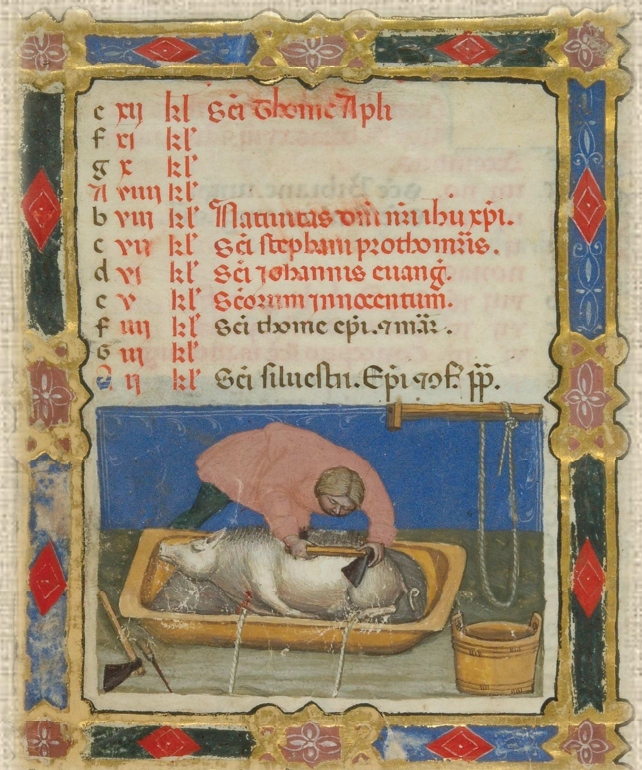 e xij kl' Sci Thome Apli
f xi kl'
g x kl'
A viiii kl'
b viii kl' Natiuitas dni nri ihu xpi.
c vii kl' Sci stephani prothomris.
d vi kl' Sci iohannis euang.
e v kl' Scorum innocentum.
f iiii kl' Sci thome epi. 7 mar.
G iii kl'
ii kl' Sci siluestri. Epi 7 of. pp.